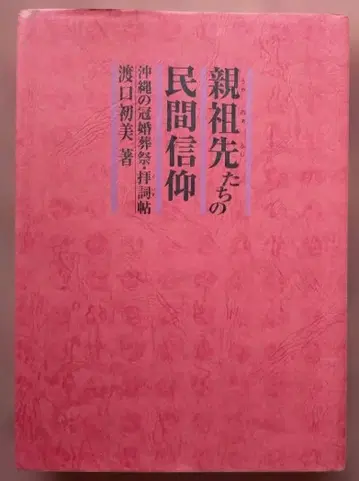 親祖先たちの
民間信仰
沖縄の冠婚葬祭・拝詞帖
渡口初美 著